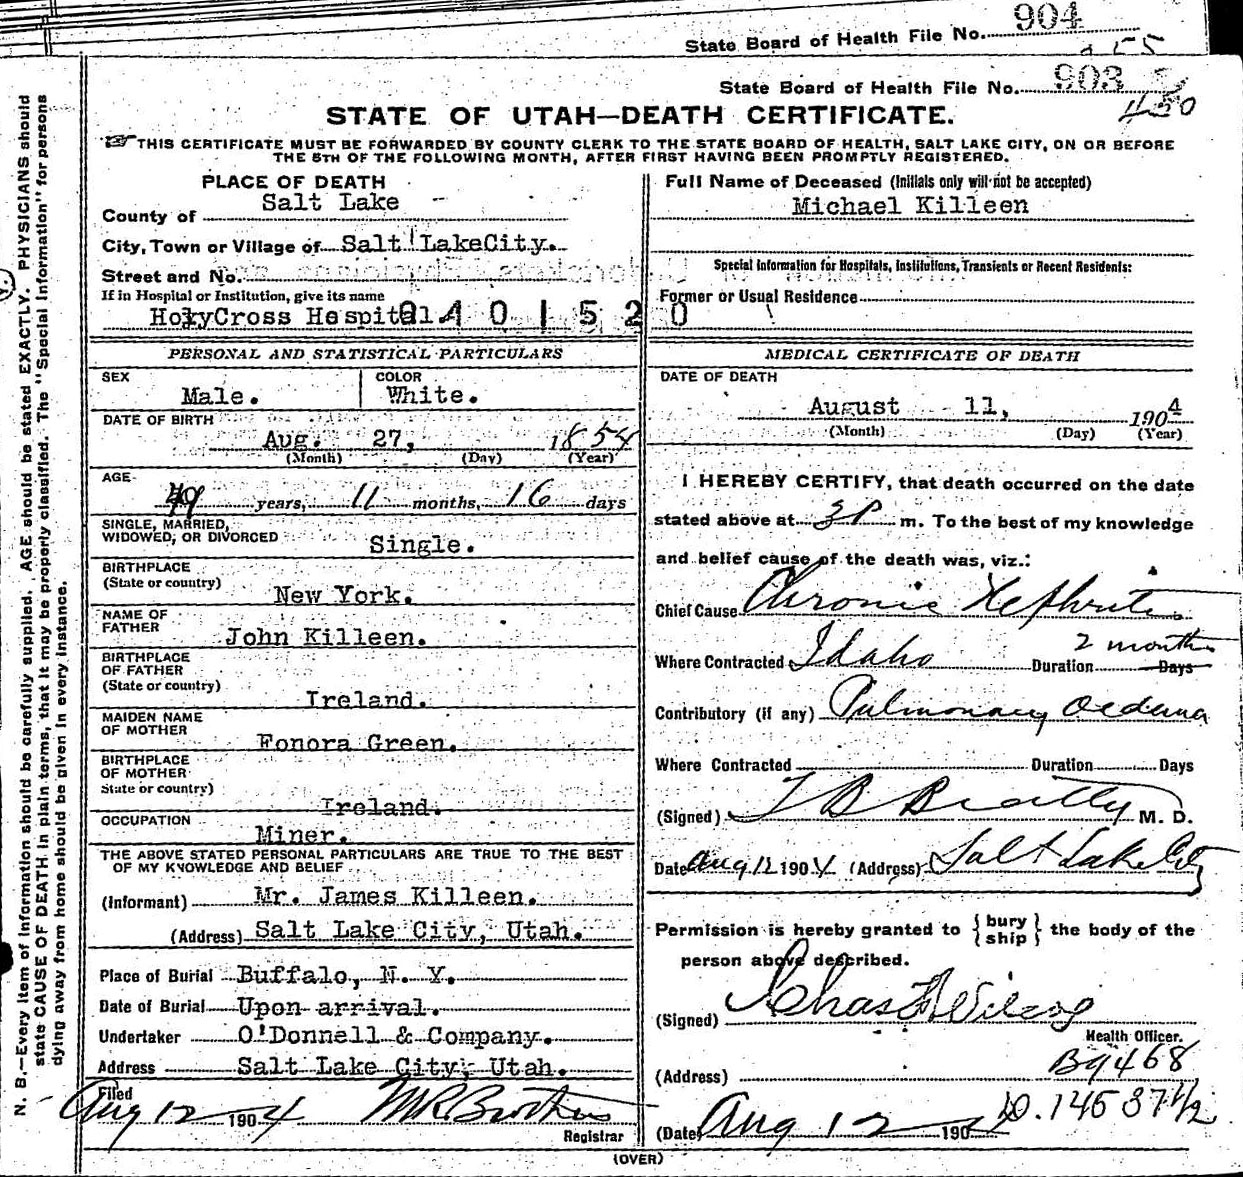 State Board of Health File No. 904
255
State Board of Health File No. 903
450
STATE OF UTAH—DEATH CERTIFICATE.
☞ THIS CERTIFICATE MUST BE FORWARDED BY COUNTY CLERK TO THE STATE BOARD OF HEALTH, SALT LAKE CITY, ON OR BEFORE
THE 5TH OF THE FOLLOWING MONTH, AFTER FIRST HAVING BEEN PROMPTLY REGISTERED.
N. B.—Every item of information should be carefully supplied. AGE should be stated EXACTLY. PHYSICIANS should
state CAUSE OF DEATH in plain terms, that it may be properly classified. The "Special Information" for persons
dying away from home should be given in every instance.
PLACE OF DEATH
County of Salt Lake
City, Town or Village of Salt Lake City.
Street and No.
If in Hospital or Institution, give its name
Holy Cross Hospital.
0401520
PERSONAL AND STATISTICAL PARTICULARS
SEX Male.
COLOR White.
DATE OF BIRTH
Aug. 27, 1854
(Month) (Day) (Year)
AGE
49 years, 11 months, 16 days
SINGLE, MARRIED,
WIDOWED, OR DIVORCED Single.
BIRTHPLACE
(State or country) New York.
NAME OF
FATHER John Killeen.
BIRTHPLACE
OF FATHER
(State or country) Ireland.
MAIDEN NAME
OF MOTHER Fonora Green.
BIRTHPLACE
OF MOTHER
State or country) Ireland.
OCCUPATION Miner.
THE ABOVE STATED PERSONAL PARTICULARS ARE TRUE TO THE BEST
OF MY KNOWLEDGE AND BELIEF
(Informant) Mr. James Killeen.
(Address) Salt Lake City, Utah.
Place of Burial Buffalo, N. Y.
Date of Burial Upon arrival.
Undertaker O'Donnell & Company.
Address Salt Lake City, Utah.
Filed
Aug 12 1904 M R Brothers
Registrar
Full Name of Deceased (Initials only will not be accepted)
Michael Killeen
Special Information for Hospitals, Institutions, Transients or Recent Residents:
Former or Usual Residence
MEDICAL CERTIFICATE OF DEATH
DATE OF DEATH
August 11, 1904
(Month) (Day) (Year)
I HEREBY CERTIFY, that death occurred on the date
stated above at 3 P m. To the best of my knowledge
and belief cause of the death was, viz.:
Chief Cause Chronic Nephritis
Where Contracted Idaho Duration 2 months Days
Contributory (if any) Pulmonary Oedema
Where Contracted Duration Days
(Signed) T B Beatty M. D.
Date Aug 12 1904 (Address) Salt Lake City
Permission is hereby granted to { bury ship } the body of the
person above described.
(Signed) Chas F Wilcox
Health Officer.
(Address) B9468
(Date) Aug 12 190 10.146 37½
(OVER)